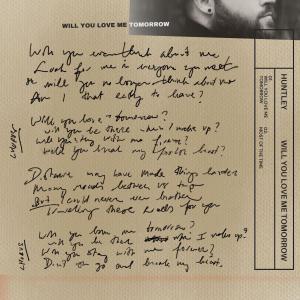 WILL YOU LOVE ME TOMORROW
Will you even think about me
Look for me in everyone you meet
Or will you no longer think about me
Am I that easy to leave?
Will you love tomorrow?
will you be there when I wake up?
will you stay with me
Will you heal my broken heart?
Distance may have made things harder
Many roads between us two
But I could never
Travelling these roads for you
Will you love me tomorrow?
will you be there when I wake up?
Will you stay with me forever?
Don't you go and break my heart.
HUNTLEY
WILL YOU LOVE ME TOMORROW
01. WILL YOU LOVE ME TOMORROW
02. MOST OF THE TIME